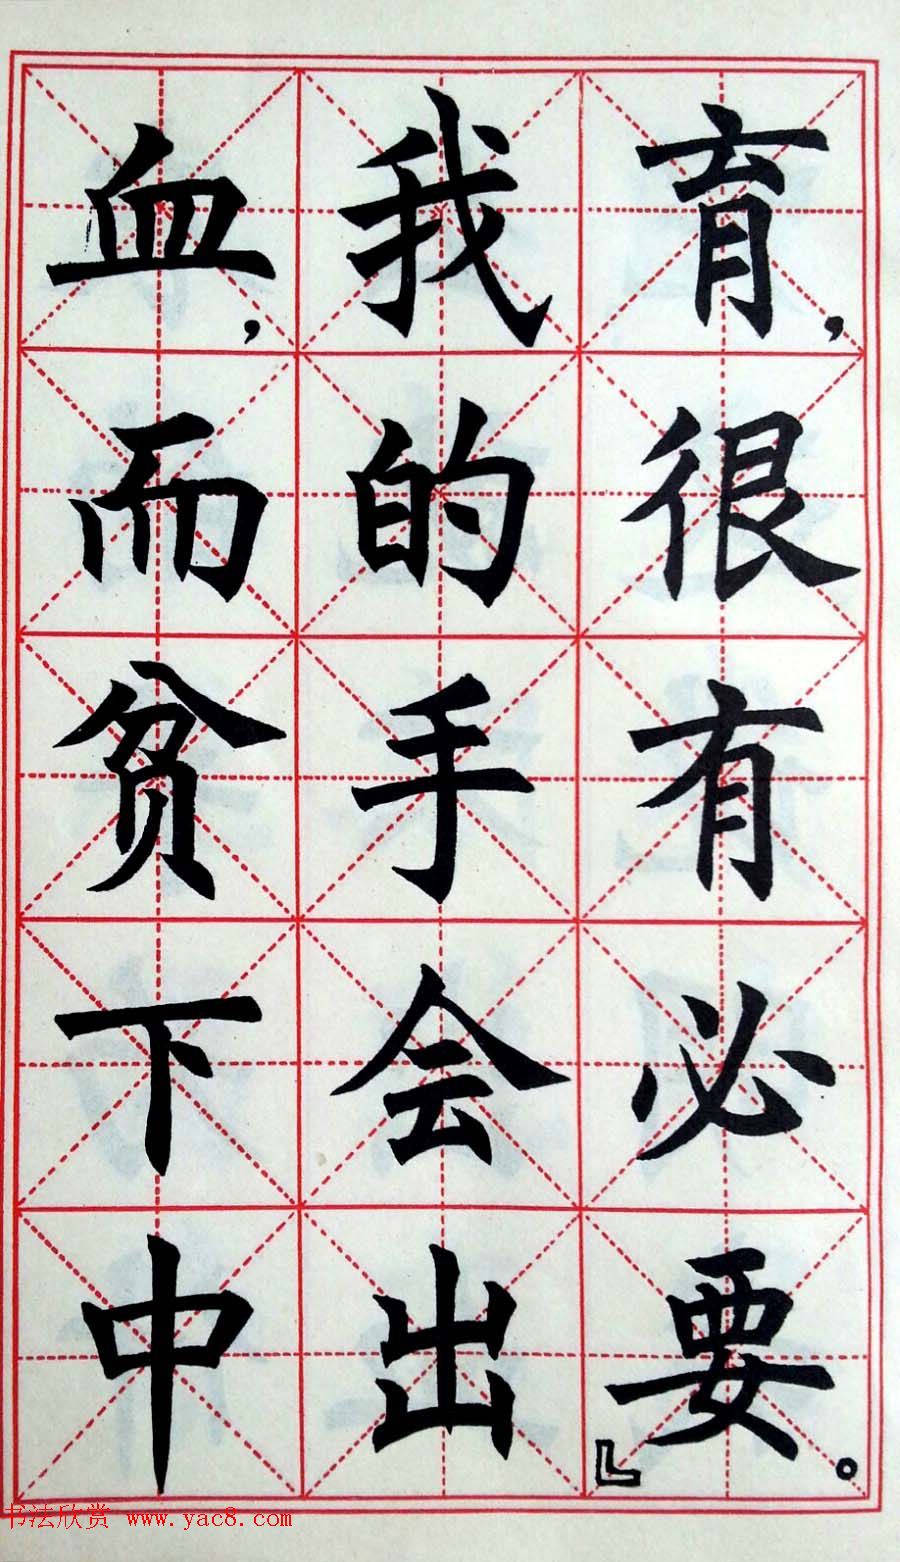 育，很有必要。』
我的手会出
血，而贫下中
书法欣赏 www.yac8.com